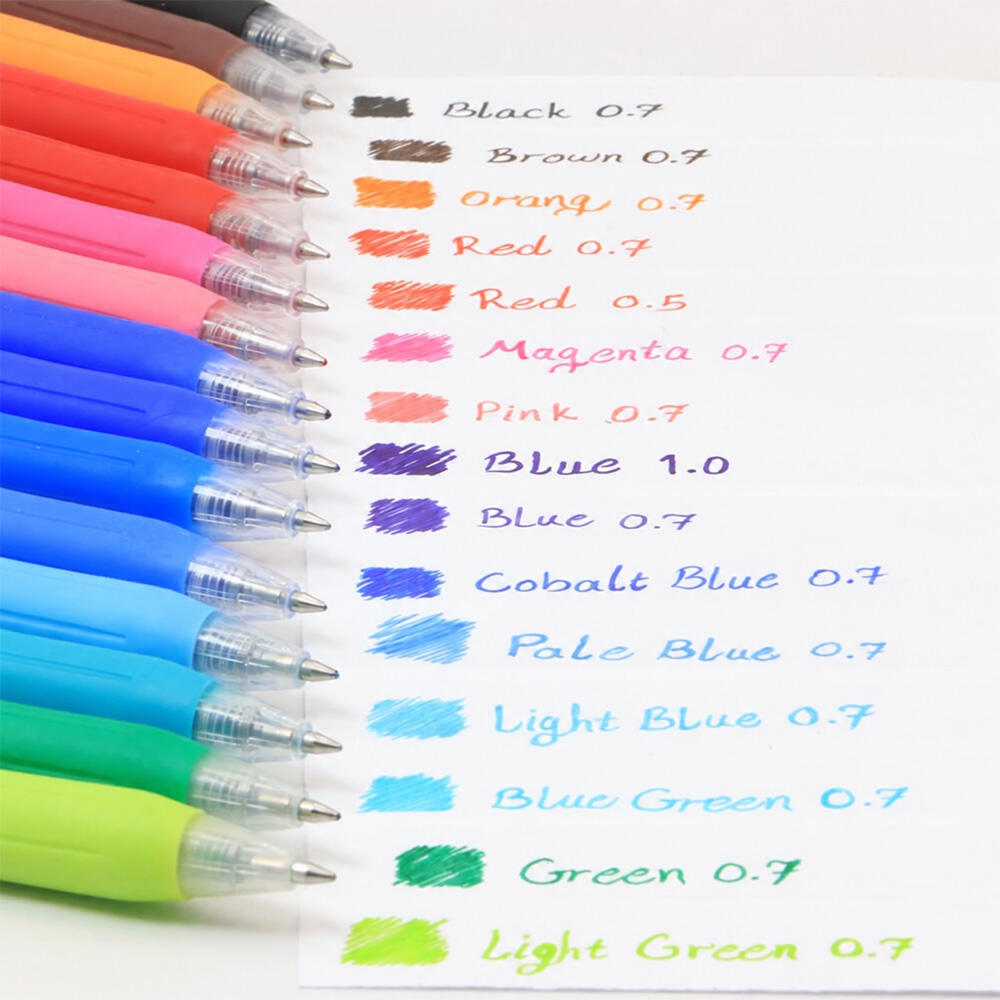 Black 0.7
Brown 0.7
Orang 0.7
Red 0.7
Red 0.5
Magenta 0.7
Pink 0.7
Blue 1.0
Blue 0.7
Cobalt Blue 0.7
Pale Blue 0.7
Light Blue 0.7
Blue Green 0.7
Green 0.7
Light Green 0.7